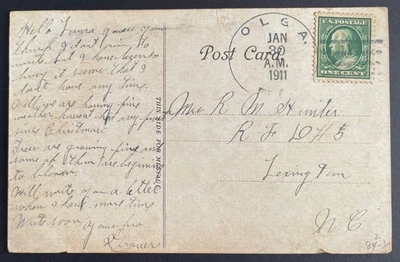 Hello Laura I guess you
think I don't going to
write but I have been so
busy it seems that I
don't have any time.
Well we are having fine
weather haven't had any
since Christmas.
Trees are growing fine and
some of them are beginning
to bloom.
Will write you a letter
when I have more time
Write soon your bro
THIS SIDE FOR MESSAGE.
OLGA
JAN
30
A.M.
1911
Post Card
U.S. POSTAGE
ONE CENT
Mrs R M Hunter
R F D # 5
Lexington
N C